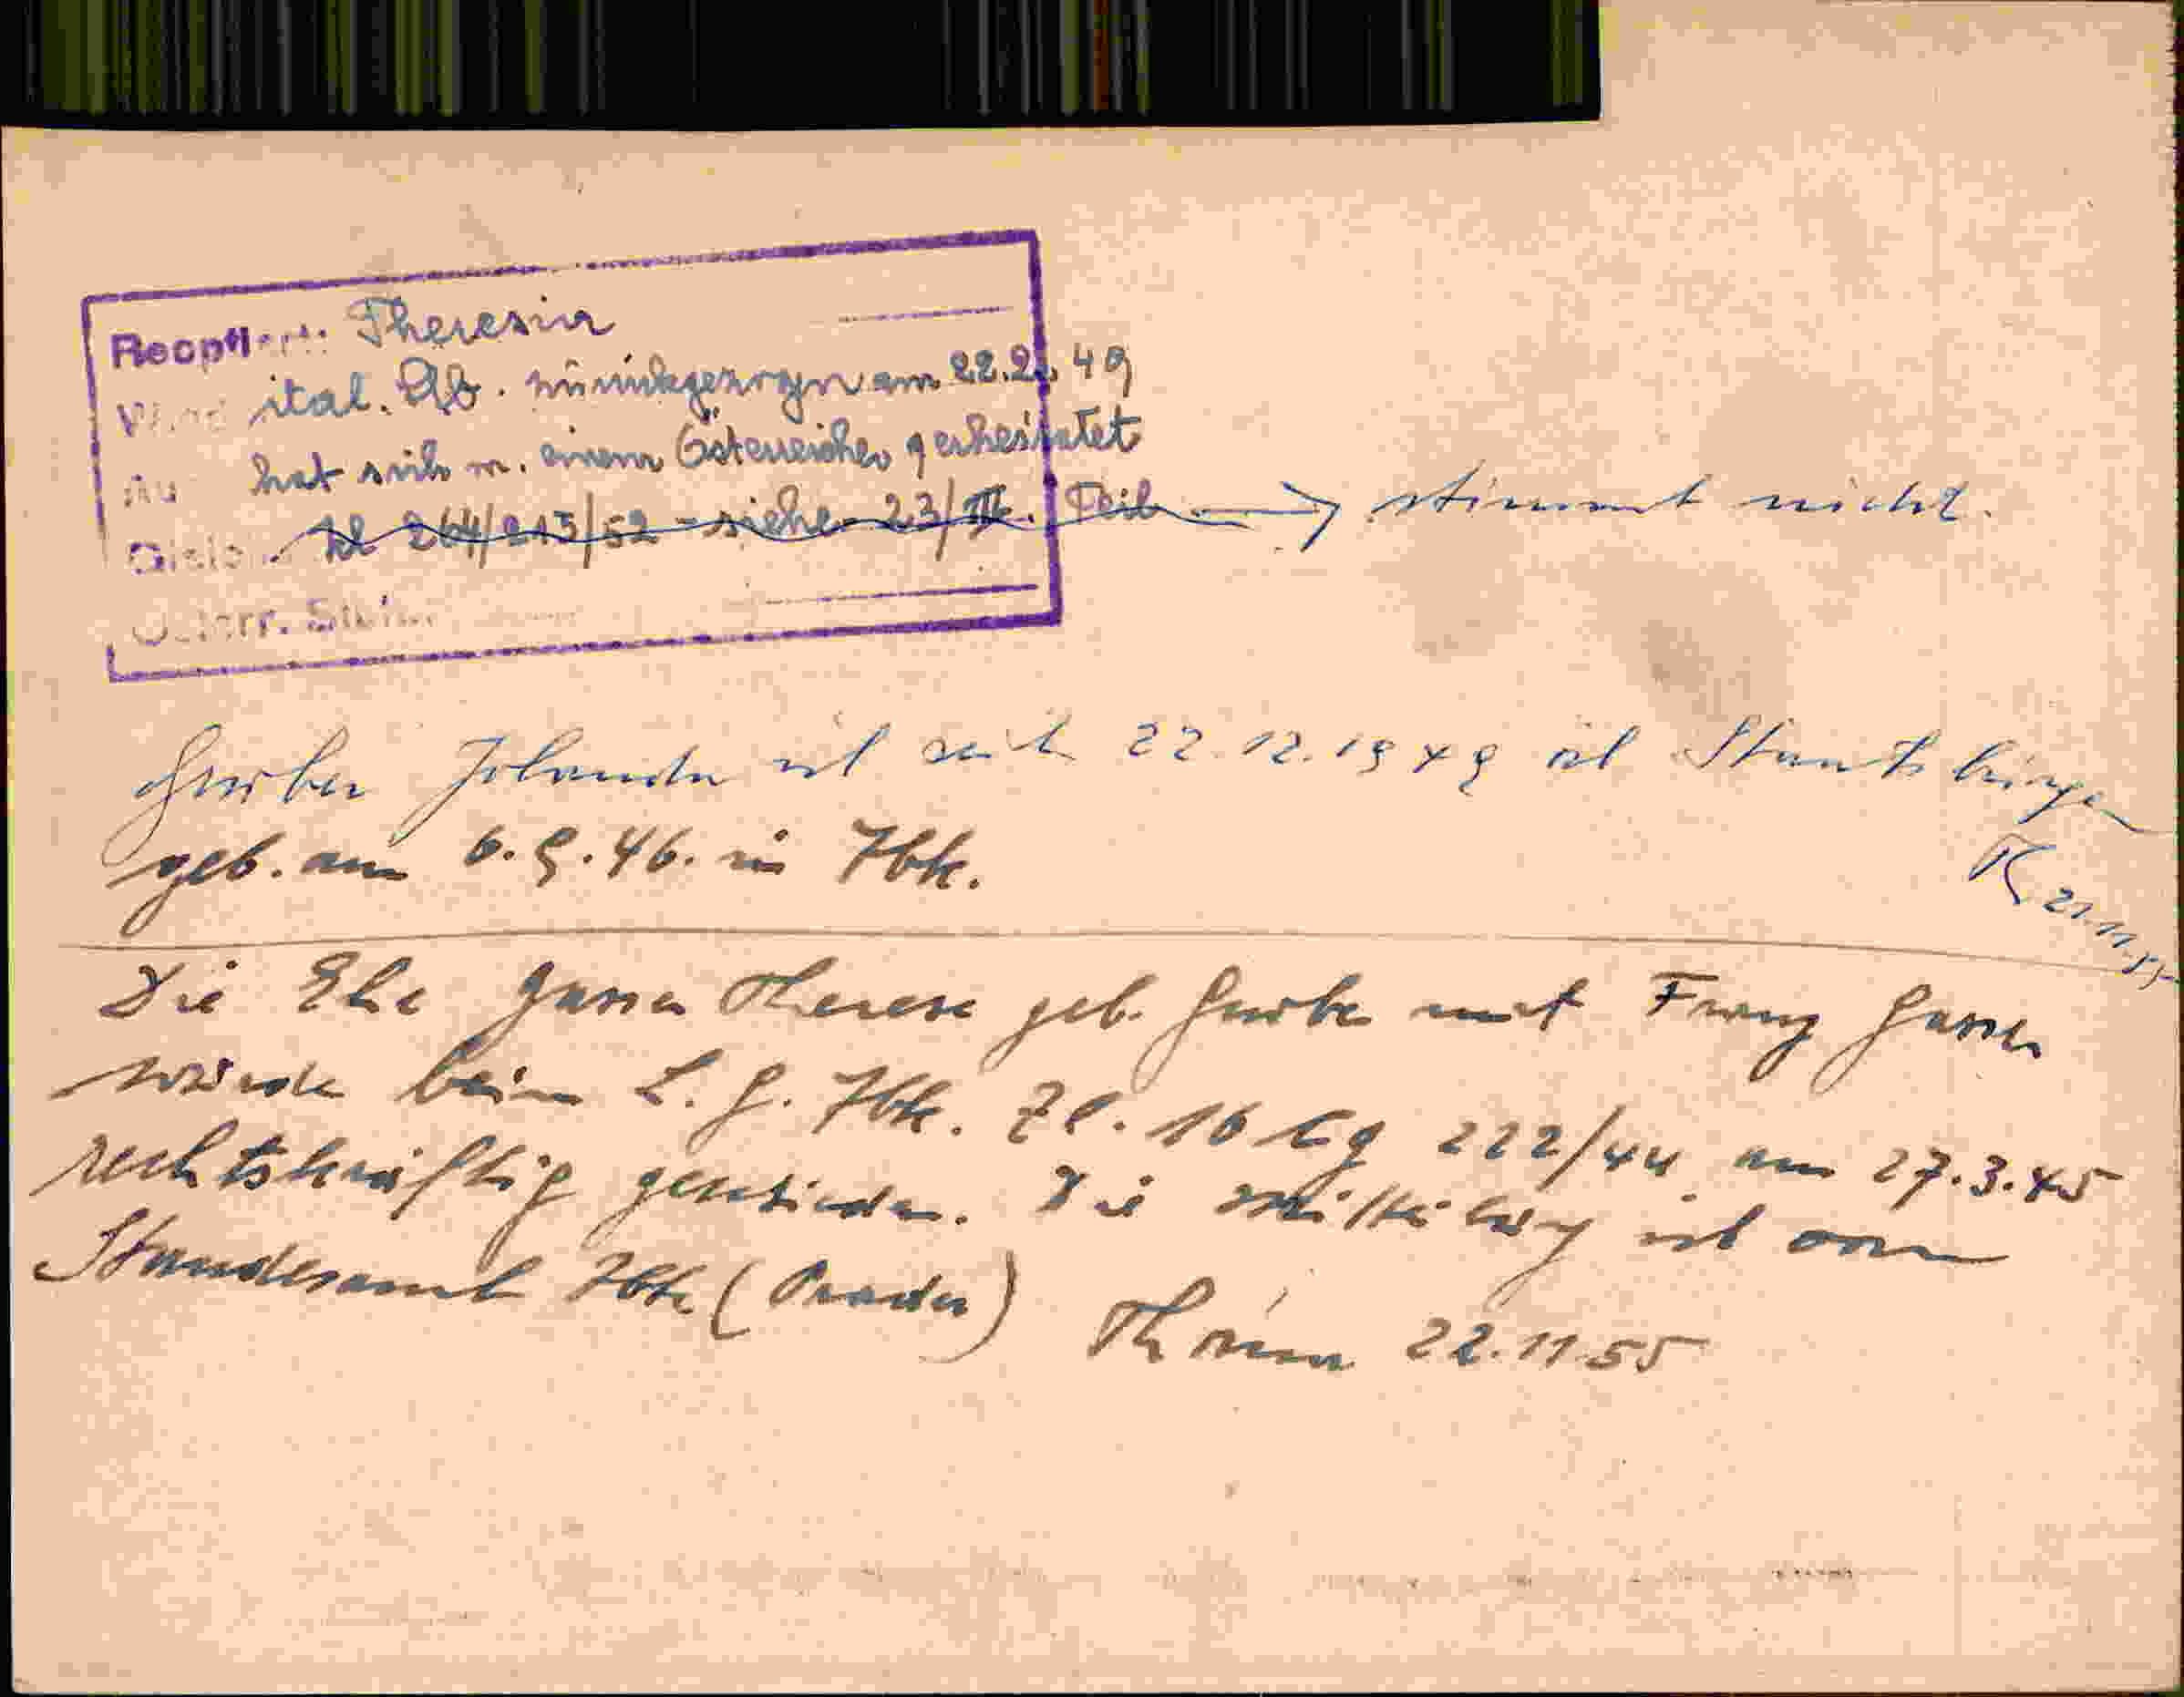 Reoptiert: Theresia
ital. Stb. zurückgezogen am 22.2. 49
hat sich m. einem Österreicher geheiratet
Zl 264/213/52 - siehe 23/III. Teil → stimmt nicht.
Österr.
Gruber Jolanda ist seit 22.12.1949 öst Staatsbürger
geb. am 6.9.46. in Ibk.
K 21.11.55
Die Ehe Gasser Therese geb. Gruber mit Franz Gasser
wurde beim L.G. Ibk. Zl. 16 Cg 222/44 am 27.3.45
rechtskräftig geschieden. Die Mitteilung ist vom
Standesamt Ibk (Prader)
22.11.55